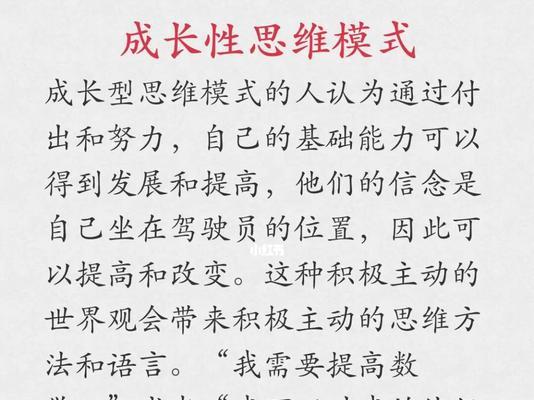 成长性思维模式
成长型思维模式的人认为通过付
出和努力，自己的基础能力可以
得到发展和提高，他们的信念是
自己坐在驾驶员的位置，因此可
小红书
以提高和改变。这种积极主动的
世界观会带来积极主动的思维方
法和语言。“我需要提高数